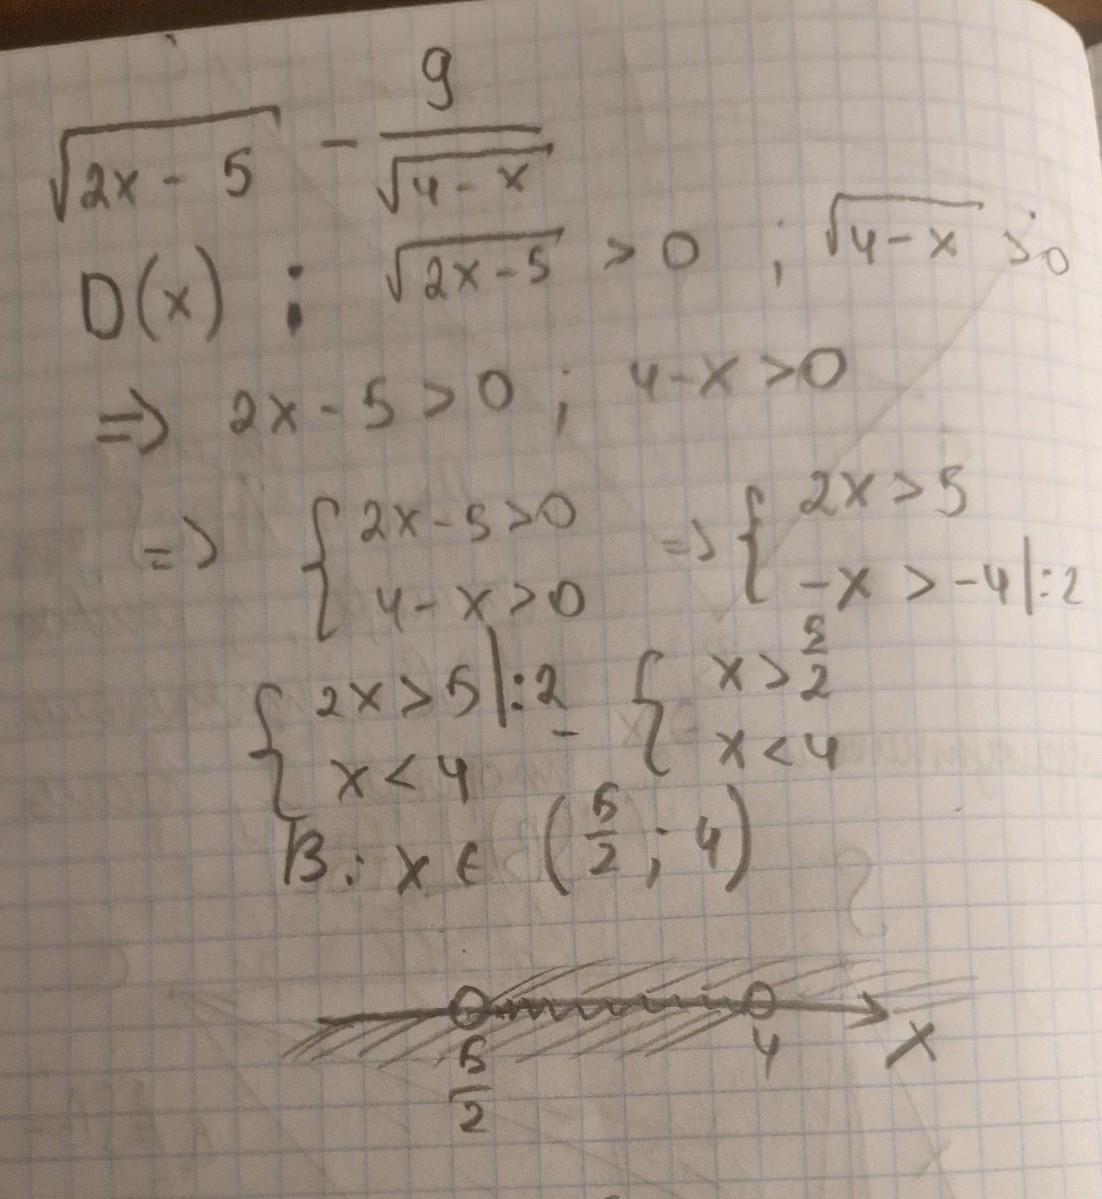 √(2x - 5) - 9/√(4 - x)
D(x) : √(2x - 5) > 0 ; √(4 - x) > 0
=> 2x - 5 > 0 ; 4 - x > 0
=> { 2x - 5 > 0 => { 2x > 5
4 - x > 0 -x > -4 | :2
{ 2x > 5 | :2 - { x > 5/2
x < 4 x < 4
B: x ∈ (5/2 ; 4)
5/2 4 x